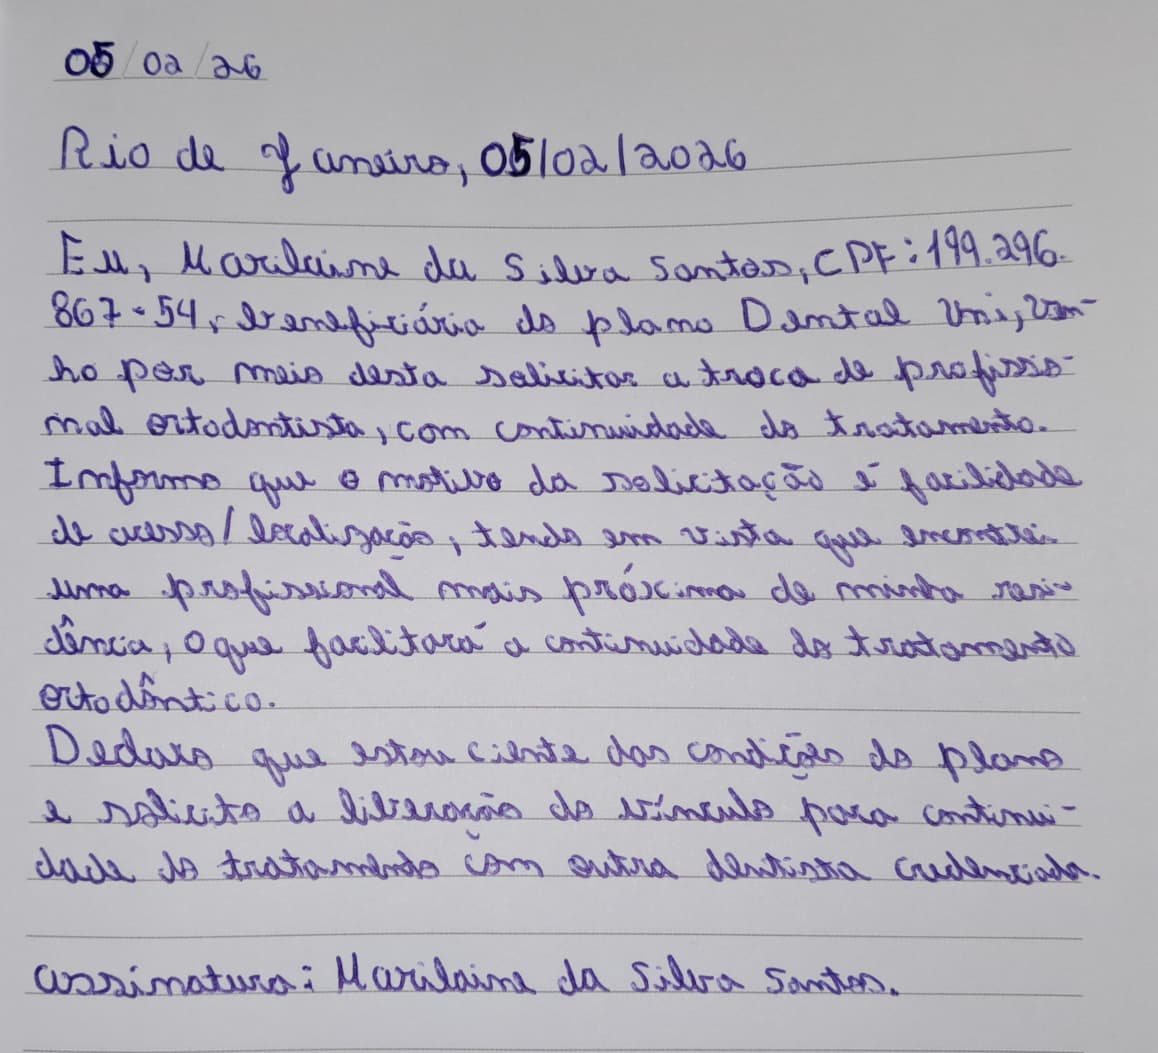 05/02/26
Rio de Janeiro, 05/02/2026
Eu, Marilaine da Silva Santos, CPF: 199.296.
867-54, beneficiária do plano Dental Uni, ven-
ho por meio desta solicitar a troca de profissio-
nal ortodontista, com continuidade do tratamento.
Informo que o motivo da solicitação é facilidade
de acesso/localização, tendo em vista que encontrei
uma profissional mais próxima de minha resi-
dência, o que facilitará a continuidade do tratamento
ortodôntico.
Declaro que estou ciente das condições do plano
e solicito a liberação do vínculo para continui-
dade do tratamento com outra dentista credenciada.
assinatura: Marilaine da Silva Santos.